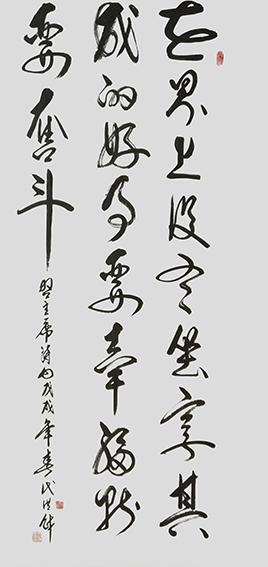 世界上没有坐享其
成的好事要幸福就
要奋斗
习主席句戊戌年春